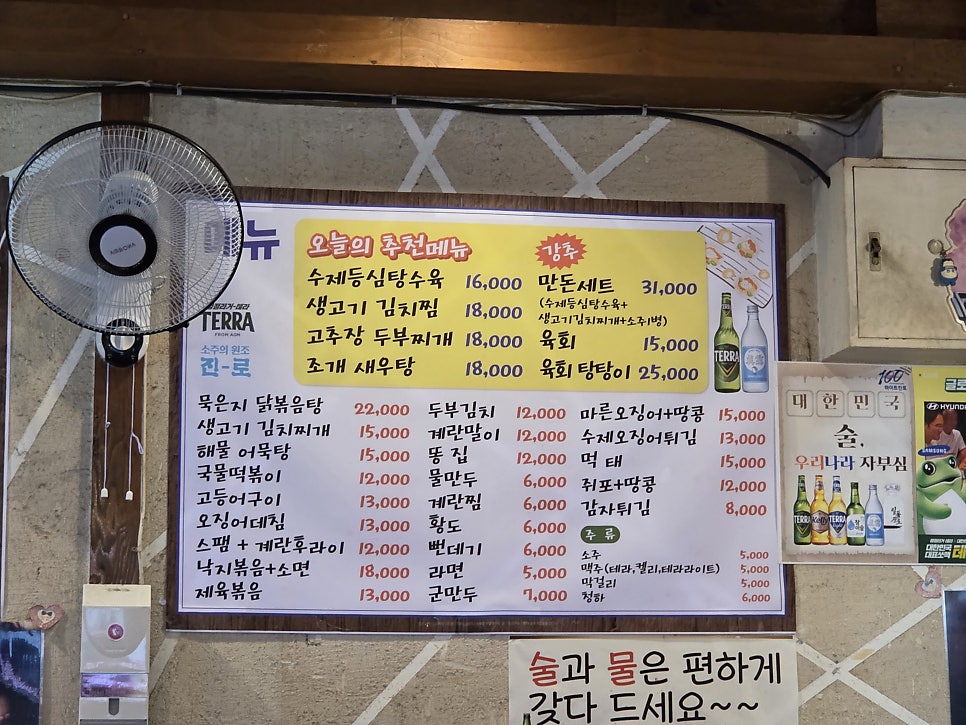 뉴
오늘의 추천메뉴
수제등심탕수육 16,000
생고기 김치찜 18,000
고추장 두부찌개 18,000
조개 새우탕 18,000
강추
만돈세트 31,000
(수제등심탕수육+
생고기김치찌개+소주1병)
육회 15,000
육회 탕탕이 25,000
TERRA
소주의 원조
진-로
TERRA
묵은지 닭볶음탕 22,000
생고기 김치찌개 15,000
해물 어묵탕 15,000
국물떡볶이 12,000
고등어구이 13,000
오징어데침 13,000
스팸 + 계란후라이 12,000
낙지볶음+소면 18,000
제육볶음 13,000
두부김치 12,000
계란말이 12,000
똥 집 12,000
물만두 6,000
계란찜 6,000
황도 6,000
뻔데기 6,000
라면 5,000
군만두 7,000
마른오징어+땅콩 15,000
수제오징어튀김 13,000
먹 태 15,000
쥐포+땅콩 12,000
감자튀김 8,000
주 류
소주 5,000
맥주(테라,켈리,테라라이트) 5,000
막걸리 5,000
청하 6,000
술과 물은 편하게
갖다 드세요~~
100
하이트진로
대한민국
술,
우리나라 자부심
TERRA
Kelly
TERRA
HYUNDAI
SAMSUNG
대한민국